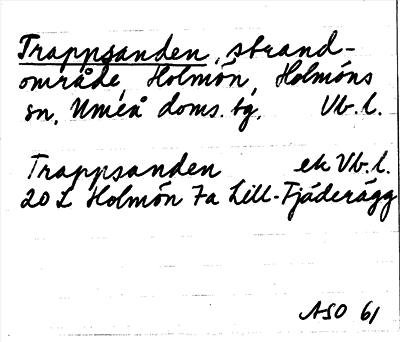 Trappsanden, strand-
område, Holmön, Holmöns
sn, Umeå doms. tg. Vb. l.
Trappsanden ek Vb. l.
20 L Holmön 7a Lill-Fjäderägg
ASO 61